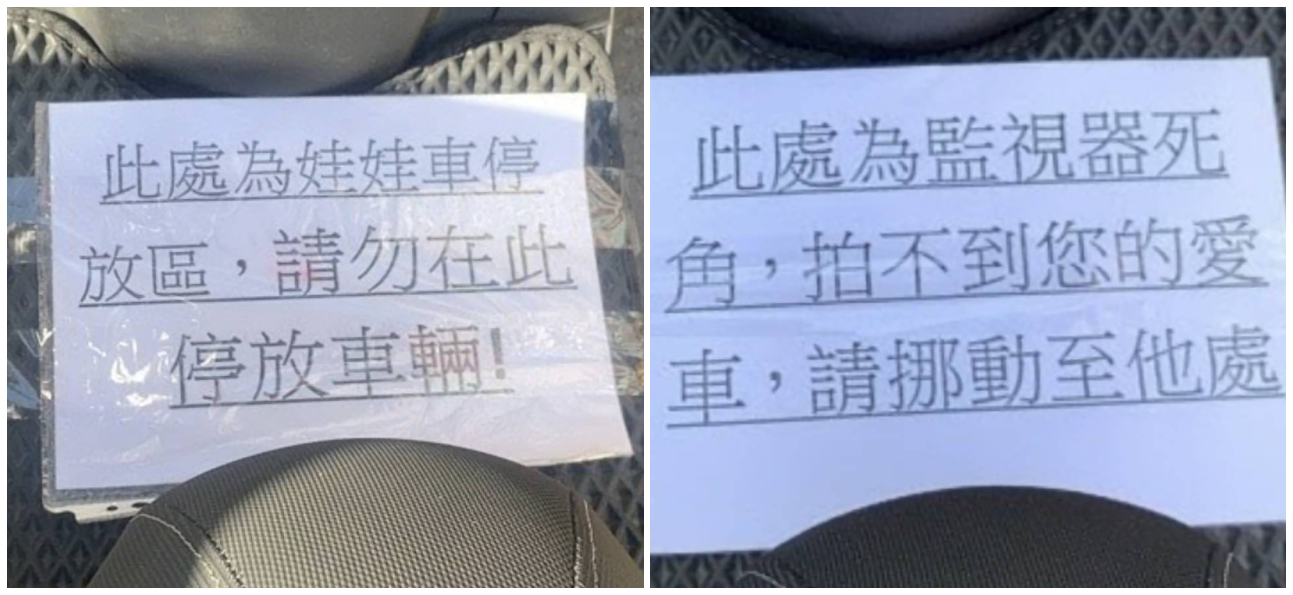 此處為娃娃車停
放區，請勿在此
停放車輛!
此處為監視器死
角，拍不到您的愛
車，請挪動至他處